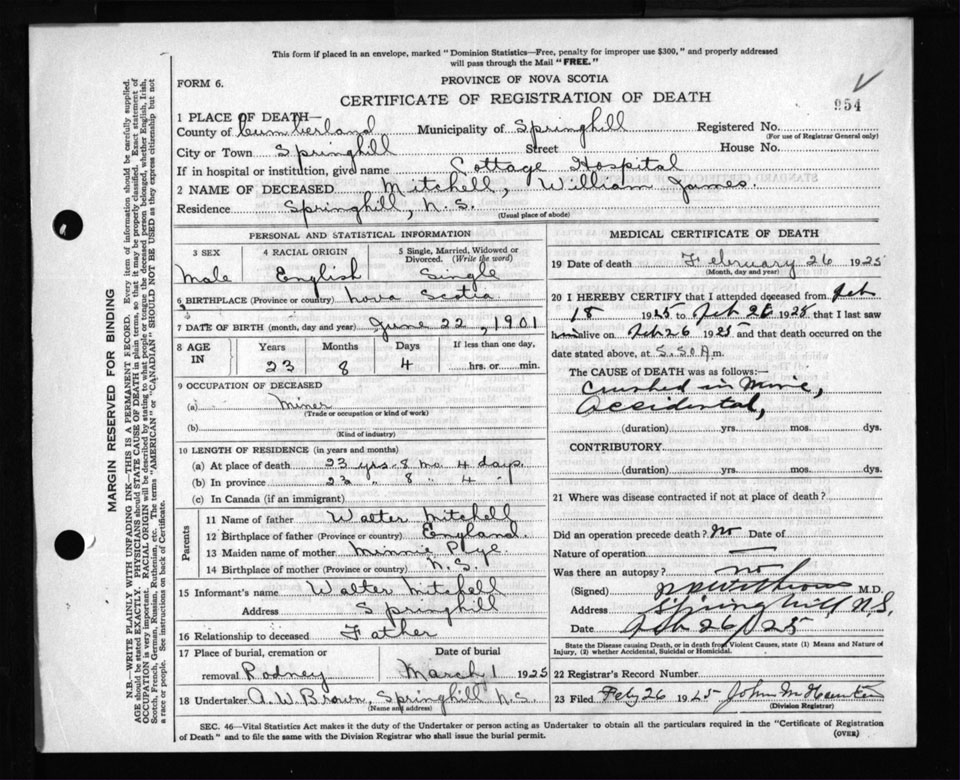 This form if placed in an envelope, marked "Dominion Statistics—Free, penalty for improper use $300," and properly addressed
will pass through the Mail "FREE."
FORM 6.
PROVINCE OF NOVA SCOTIA
CERTIFICATE OF REGISTRATION OF DEATH
954
1 PLACE OF DEATH—
County of Cumberland Municipality of Springhill Registered No.
(For use of Registrar General only)
City or Town Springhill Street House No.
If in hospital or institution, give name Cottage Hospital
2 NAME OF DECEASED Mitchell, William James.
Residence Springhill, N.S.
(Usual place of abode)
PERSONAL AND STATISTICAL INFORMATION
3 SEX 4 RACIAL ORIGIN 5 Single, Married, Widowed or Divorced. (Write the word)
Male English Single
6 BIRTHPLACE (Province or country) Nova Scotia
7 DATE OF BIRTH (month, day and year) June 22, 1901
8 AGE IN Years Months Days If less than one day,
23 8 4 hrs. or min.
9 OCCUPATION OF DECEASED
(a) Miner
(Trade or occupation or kind of work)
(b)
(Kind of industry)
10 LENGTH OF RESIDENCE (in years and months)
(a) At place of death 23 yrs. 8 mo. 4 days.
(b) In province 23 " 8 " 4 "
(c) In Canada (if an immigrant)
Parents
11 Name of father Walter Mitchell
12 Birthplace of father (Province or country) England.
13 Maiden name of mother Minnie Pye
14 Birthplace of mother (Province or country) N.S.
15 Informant's name Walter Mitchell
Address Springhill
16 Relationship to deceased Father
17 Place of burial, cremation or Date of burial
removal Rodney March 1 1925
18 Undertaker A.W. Brown, Springhill N.S.
(Name and address)
MEDICAL CERTIFICATE OF DEATH
19 Date of death February 26 1925
(Month, day and year)
20 I HEREBY CERTIFY that I attended deceased from Feb
18 1925 to Feb 26 1925 that I last saw
him alive on Feb 26 1925 and that death occurred on the
date stated above, at 5.50 A m.
The CAUSE of DEATH was as follows:—
Crushed in Mine,
Accidental,
(duration) yrs. mos. dys.
CONTRIBUTORY.
(duration) yrs. mos. dys.
21 Where was disease contracted if not at place of death?
Did an operation precede death? No Date of
Nature of operation
Was there an autopsy? no
(Signed) M.D.
Address Springhill N.S.
Date Feb 26/25
State the Disease causing Death, or in death from Violent Causes, state (1) Means and Nature of
Injury, (2) whether Accidental, Suicidal or Homicidal.
22 Registrar's Record Number
23 Filed Feb 26 1925 John M
(Division Registrar)
SEC. 46—Vital Statistics Act makes it the duty of the Undertaker or person acting as Undertaker to obtain all the particulars required in the "Certificate of Registration
of Death" and to file the same with the Division Registrar who shall issue the burial permit.
(OVER)
MARGIN RESERVED FOR BINDING
N.B.—WRITE PLAINLY WITH UNFADING INK—THIS IS A PERMANENT RECORD. Every item of information should be carefully supplied.
AGE should be stated EXACTLY. PHYSICIANS should STATE CAUSE OF DEATH in plain terms, so that it may be properly classified. Exact statement of
OCCUPATION is very important. RACIAL ORIGIN will be described by stating to what people or tongue the deceased person belonged, whether English, Irish,
Scotch, French, German, Russian, Ruthenian, etc. The terms "AMERICAN" or "CANADIAN" SHOULD NOT BE USED as they express citizenship but not
a race or people. See instructions on back of Certificate.